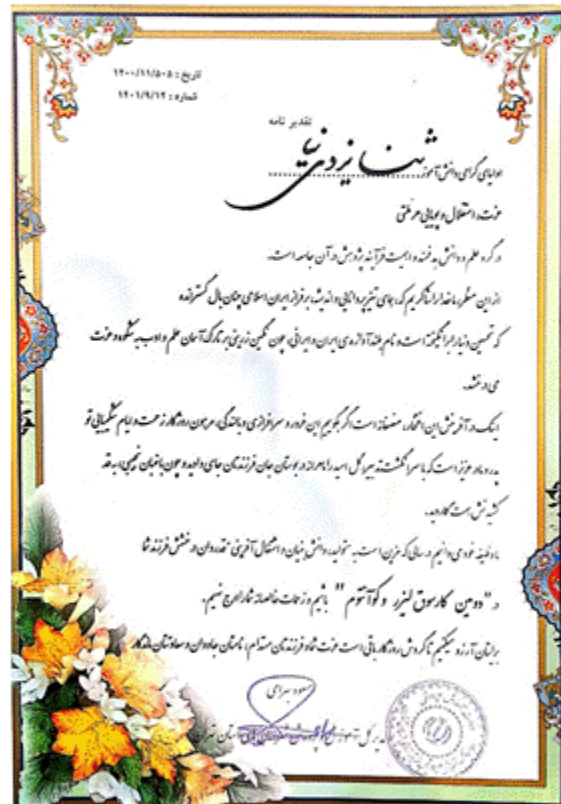 تاریخ : ۱۴۰۰/۱۱/۵۰۵
شماره : ۱۴۰۱/۹/۱۲
تقدیر نامه
اولیای گرامی دانش آموز ثنا یزدی نیا
عزت، استقلال و پویایی هر ملتی
در گرو علم و دانش به فهم و اهمیت فرآیند پژوهش در آن جامعه است.
از این منظر، ما خدا را شاکریم که، های تیز پر دانایی و اندیشه بر فراز ایران اسلامی چنان بال گسترانده
که تحسین دنیا را برانگیخته است و نام بلند آوازه ی ایران و ایرانی، چون نگین زرینی بر تارک آسمان علم و ادب به شکوه و عزت
می درخشد.
اینک در آفرینش این افتخار، منصفانه است اگر بگوییم این غرور و سرافرازی و بالندگی، مرهون روزگار زحمت و ایام شکیبایی تو
پدر و مادر عزیز است که با سر انگشت تدبیر، گل امید را ماهرانه در بوستان جان فرزندتان جای داده اید و چون باغبان
همت گمارده اید.
ما وظیفه خود می دانیم در سالی که مزین است به تولید، دانش بنیان و اشتغال آفرینی قدردان درخشش فرزند شما
در "دومین کارسوق لیزر و کوآنتوم" باشیم و زحمات خالصانه شما را ارج نهیم.
برایتان آرزو میکنیم تا گردش روزگار باقی است عزت شما و فرزندتان مستدام، نامتان جاودان و سعادتتان ماندگار
مسعود
مدیر کل آموزش و پرورش استان تهران